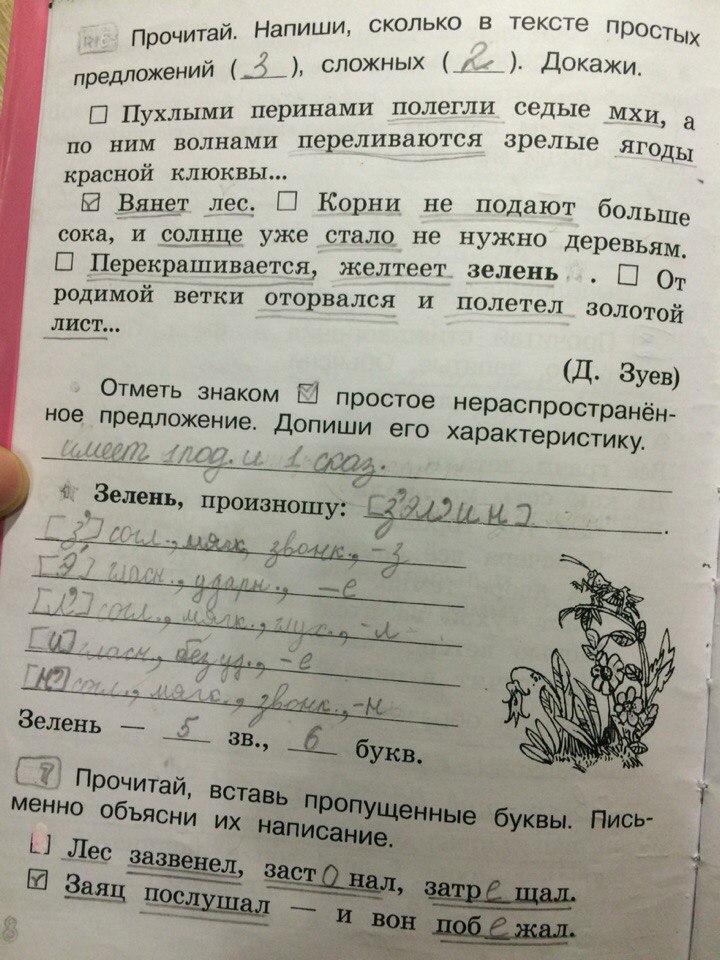 Прочитай. Напиши, сколько в тексте простых
предложений ( 3 ), сложных ( 2 ). Докажи.
☐ Пухлыми перинами полегли седые мхи, а
по ним волнами переливаются зрелые ягоды
красной клюквы...
☑ Вянет лес. ☐ Корни не подают больше
сока, и солнце уже стало не нужно деревьям.
☐ Перекрашивается, желтеет зелень . ☐ От
родимой ветки оторвался и полетел золотой
лист...
(Д. Зуев)
Отметь знаком ☑ простое нераспространён-
ное предложение. Допиши его характеристику.
имеет 1 под. и 1 сказ.
Зелень, произношу: [з'эл'ин'].
[з'] согл., мягк, звонк., -з
[э'] гласн., ударн., -е
[л'] согл., мягк., глух., -л
[и] гласн, без уд., -е
[н'] согл., мягк., звонк., -н
Зелень — 5 зв., 6 букв.
8 Прочитай, вставь пропущенные буквы. Пись-
менно объясни их написание.
☐ Лес зазвенел, застонал, затрещал.
☑ Заяц послушал — и вон побежал.
8